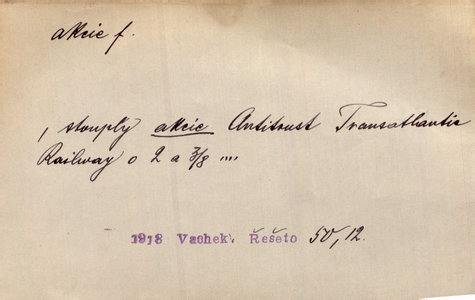 akcie f.
, stouply akcie Antitrust Transatlantic
Railway o 2 a 3/8 ....
1918 Vachek, Řešeto 50, 12.